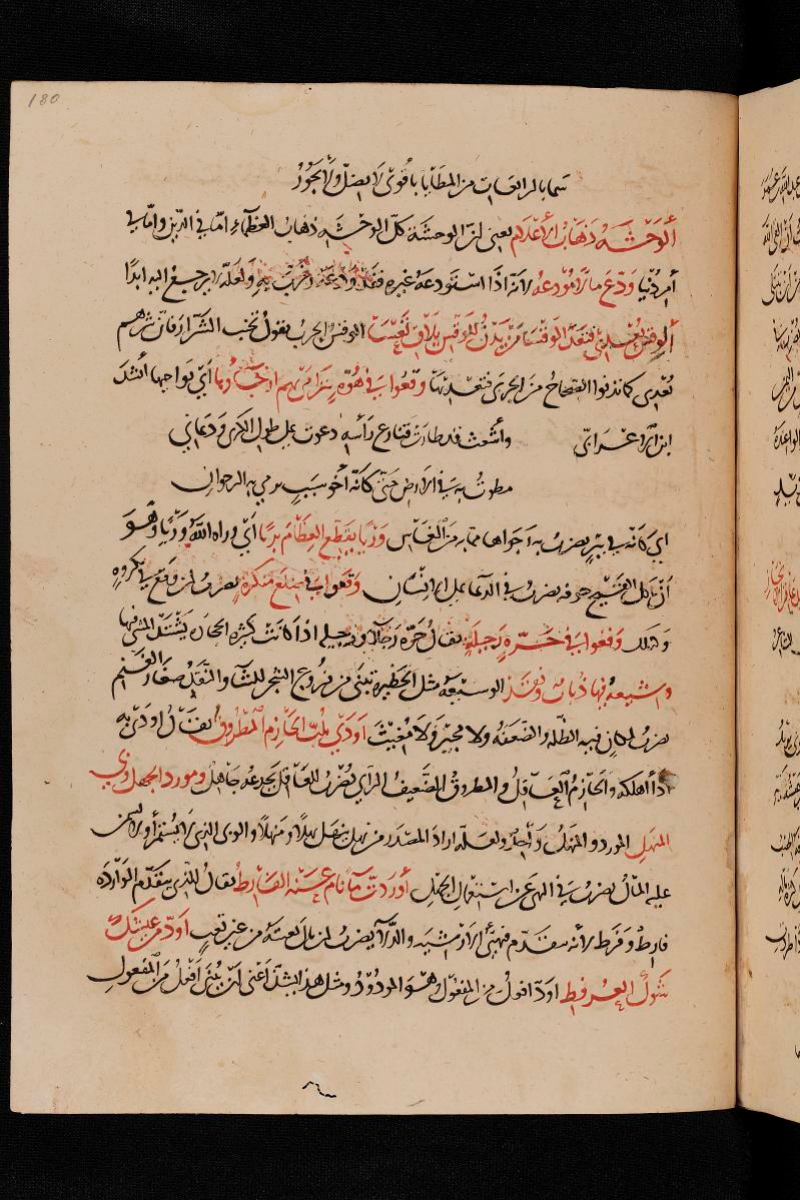 180
سما بالراقصات من المطايا بأقوى لا يضل ولا يجوز
ألوحشة ذهاب الأعلام يعني أن الوحشة كل الوحشة ذهاب العظماء اما في الدين واما في
أمر دنيا ودع مالا مودعه لأنه اذا استودعه غيره فقد ودعه وغرب به ولعله لا يرجع اليه ابدا
من يدن للوقس يلاق تعسا الوقس الجرب يقول تجنب الشرار فان شرهم
يعدي كما تدنو الصحاح من الجربى فتعديها وقعوا في هوة تترامى بهم ارجاؤها أي نواحيها أنشد
ابن الاعرابي وأشعث قد طارت قنازع رأسه دعوت على طول الكرى ودعاني
مطوت به في الارض حتى كأنه أخو سبب يرمي به الرجوان
أي كأنه في بئر يضرب به أجواها مما به من النعاس وريا يقطع العظام بريا أي وراه الله وريا وهو
أن يأكل القيح جوفه يضرب في الدعاء على الانسان وقعوا في ضلع منكرة يضرب لمن وقع في مكروه
وهلك وقعوا في حرة رجيلة يقال حرة رجلاء ورجيلة اذا كانت كثيرة الحجارة يشتد المشي فيها
وشيعة فيها ذئاب ونقد الوشيعة مثل الحظيرة تبنى من فروع الشجر للشاء والنقد صغار الغنم
يضرب لمكان فيه الظلمة والضعفة ولا مجير ولا مغيث أودى بلب الحازم المطروق يقال أودى به
اذا أهلكه والحازم العاقل والمطروق الضعيف الرأي يضرب للعاقل يخدعه جاهل ومورد الجهل وبي
المنهل المورد والمنهل واحد ولعله اراد المصدر من نهل ينهل نهلا ومنهلا والوبي الذي لا يستمرأ ولا يسمن
عليه المال يضرب في النهي عن استعمال الجهل أوردت ما نام عنه الفارط يقال للذي يتقدم الواردة
فارط وفرط لأنه يتقدم فيهيئ الارشية والدلاء يضرب لمن نال بغيته من غير تعب اود من عيشك
شول العرفط اود افعل من المفعول وهو المودود ومثل هذا يشذ أعني أن يبنى أفعل من المفعول